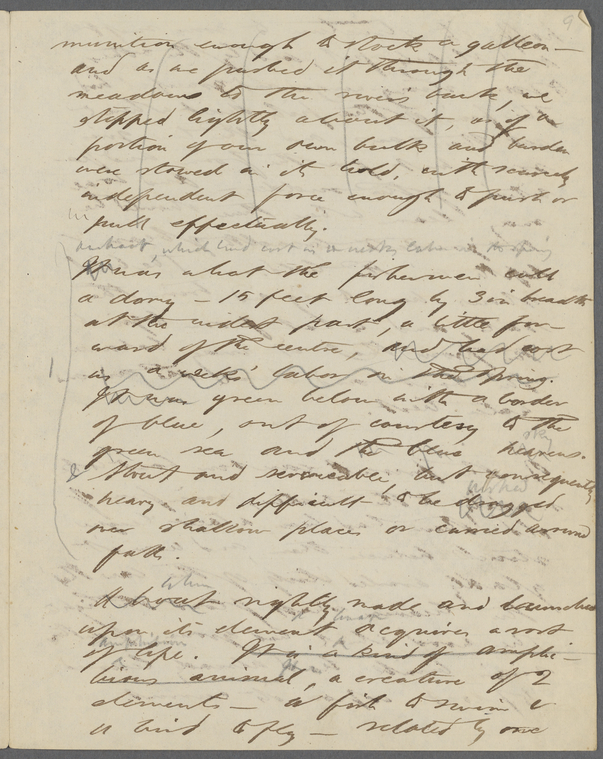 9
munition enough to stock a galleon—
and as we pushed it through the
meadows to the river's bank, we
stepped lightly about it, as if a
portion of our own bulk and burden
were stowed in its hold, with scarcely
independent force enough to push or
pull effectually.
which had cost us a week's labor in the spring
It was what the fishermen call
a dory — 15 feet long by 3 in breadth
at the widest part, a little for
ward of the centre, and had cost
us a week's labor in the spring.
It was green below with a border
of blue, out of courtesy to the
sky
green sea and the blue heavens.
Stout and serviceable, but consequently
heavy and difficult to be dragged
over shallow places or carried around
falls.
when
A boat rightly made and launched
upon its element acquires a sort
of life. It is a kind of amphi-
bious animal, a creature of 2
elements — a fish to swim &
a bird to fly — related by one